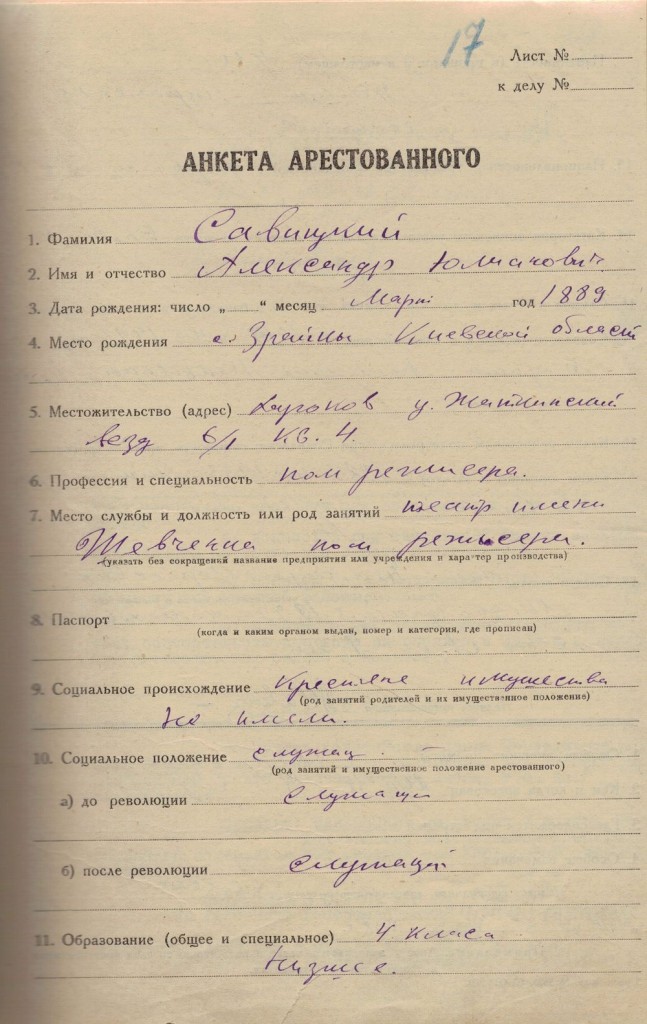 17
Лист №
к делу №
АНКЕТА АРЕСТОВАННОГО
1. Фамилия Савицкий
2. Имя и отчество Александр Юлианович
3. Дата рождения: число „ “ месяц Март год 1889
4. Место рождения с. Зрайки Киевской област
5. Местожительство (адрес) Харьков у. Жаткинский
везд 6/1 кв. 4.
6. Профессия и специальность пом режисера.
7. Место службы и должность или род занятий театр имени
Шевченка пом режисера.
(указать без сокращений название предприятия или учреждения и характер производства)
8. Паспорт
(когда и каким органом выдан, номер и категория, где прописан)
9. Социальное происхождение Крестьяне имущества
(род занятий родителей и их имущественное положение)
не имели.
10. Социальное положение служащ.
(род занятий и имущественное положение арестованного)
а) до революции служащи
б) после революции служащий
11. Образование (общее и специальное) 4 класа
низшее.